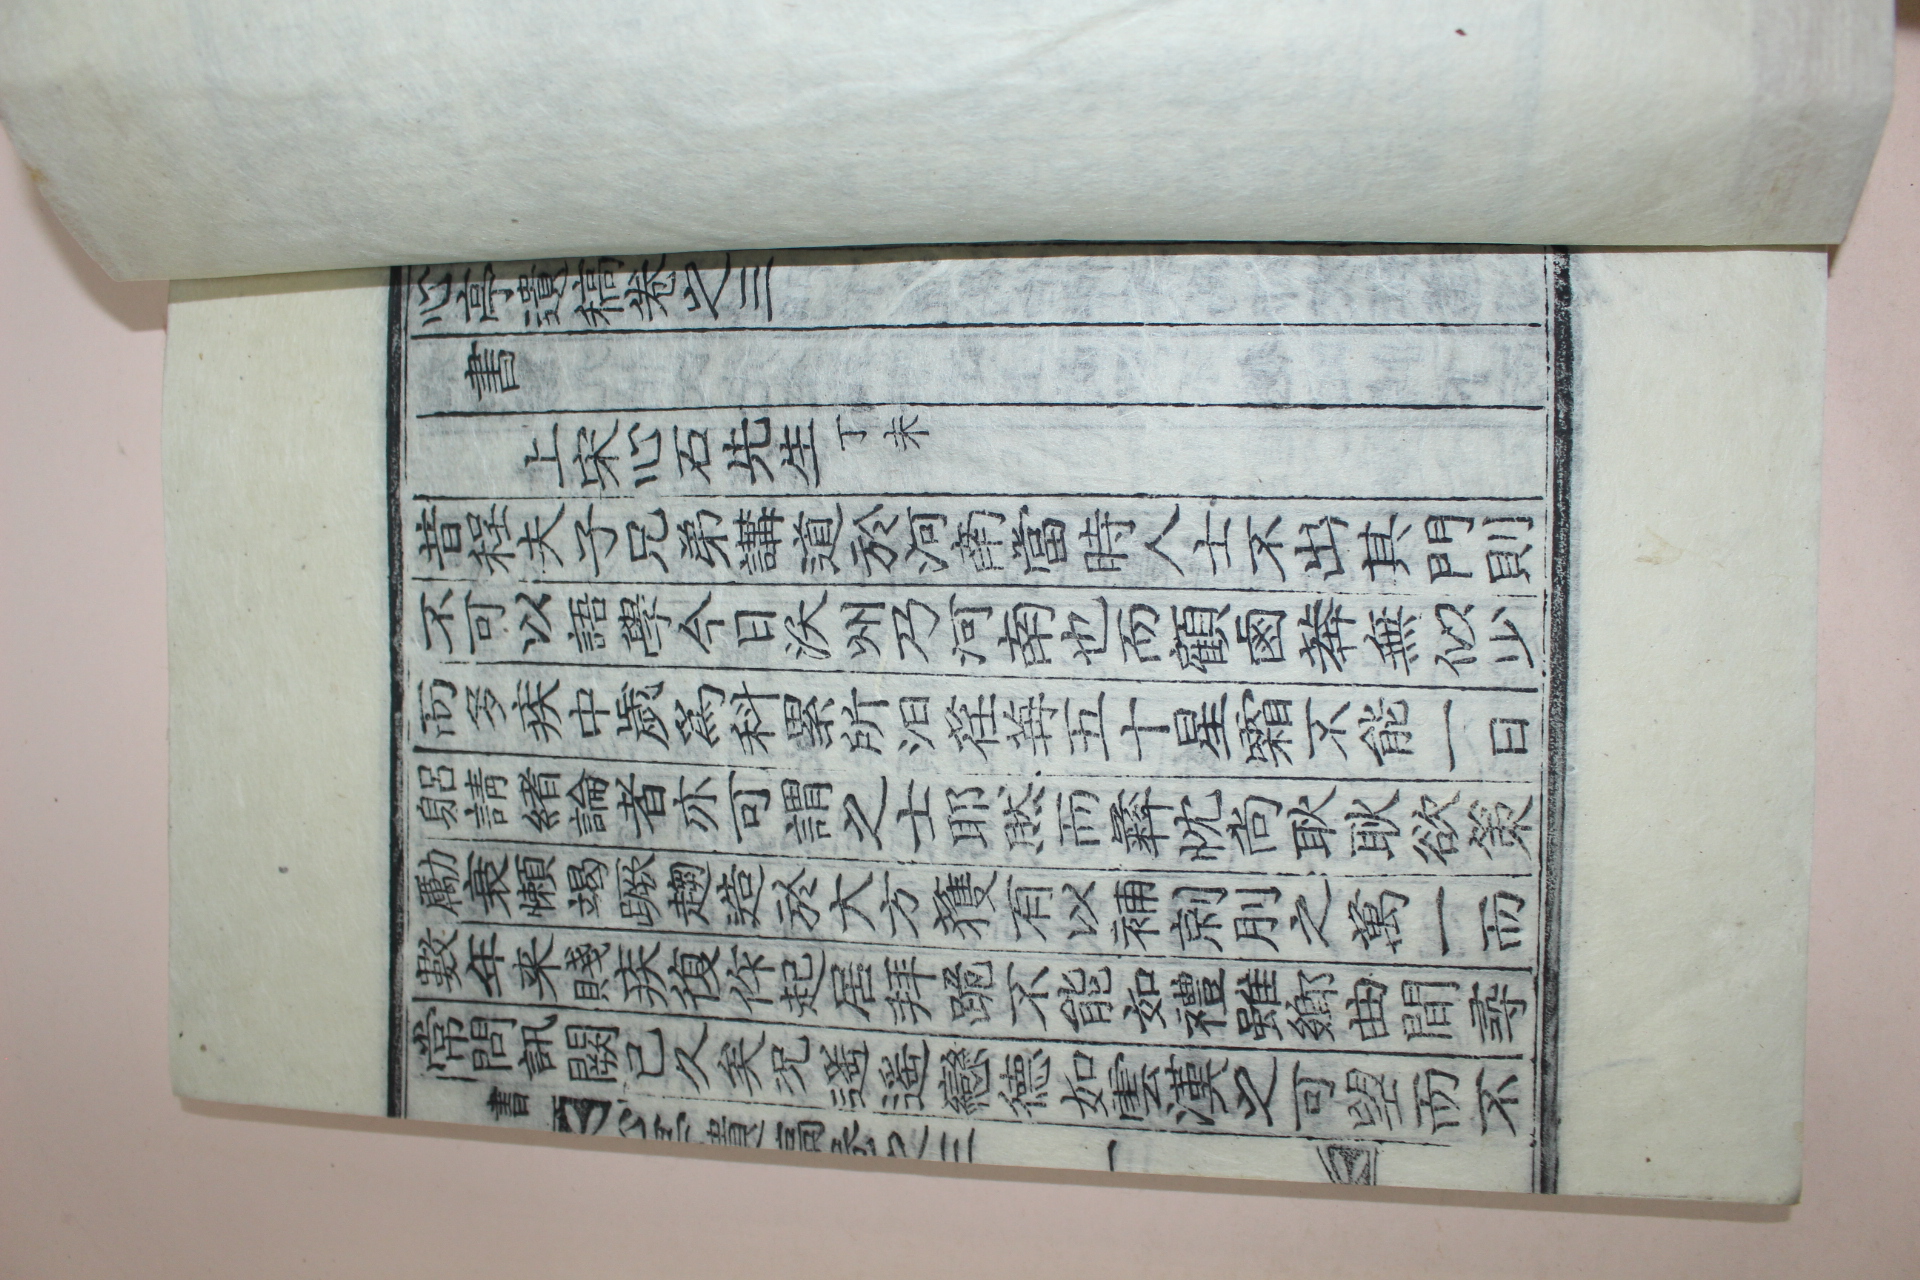 心亭遺稿卷之三
書
上宋心石先生 丁未
昔程夫子兄弟講道於河南當時人士不出其門則
不可以語學今日沃州乃河南也而顧國莾無似少
而多疾中歲爲科累所汨荏苒五十星霜不能一日
躬請緖論者亦可謂之士耶然而彛忱尙耿耿欲策
厲衰懶竭蹶趨造於大方獲有以補剠刖之萬一而
數年来賤疾復作起居拜跪不能如禮雖鄕曲間尋
常問訊闕已久矣況遙遙戀德如雲漢之可望而不
書 心亭遺稿卷之三 一